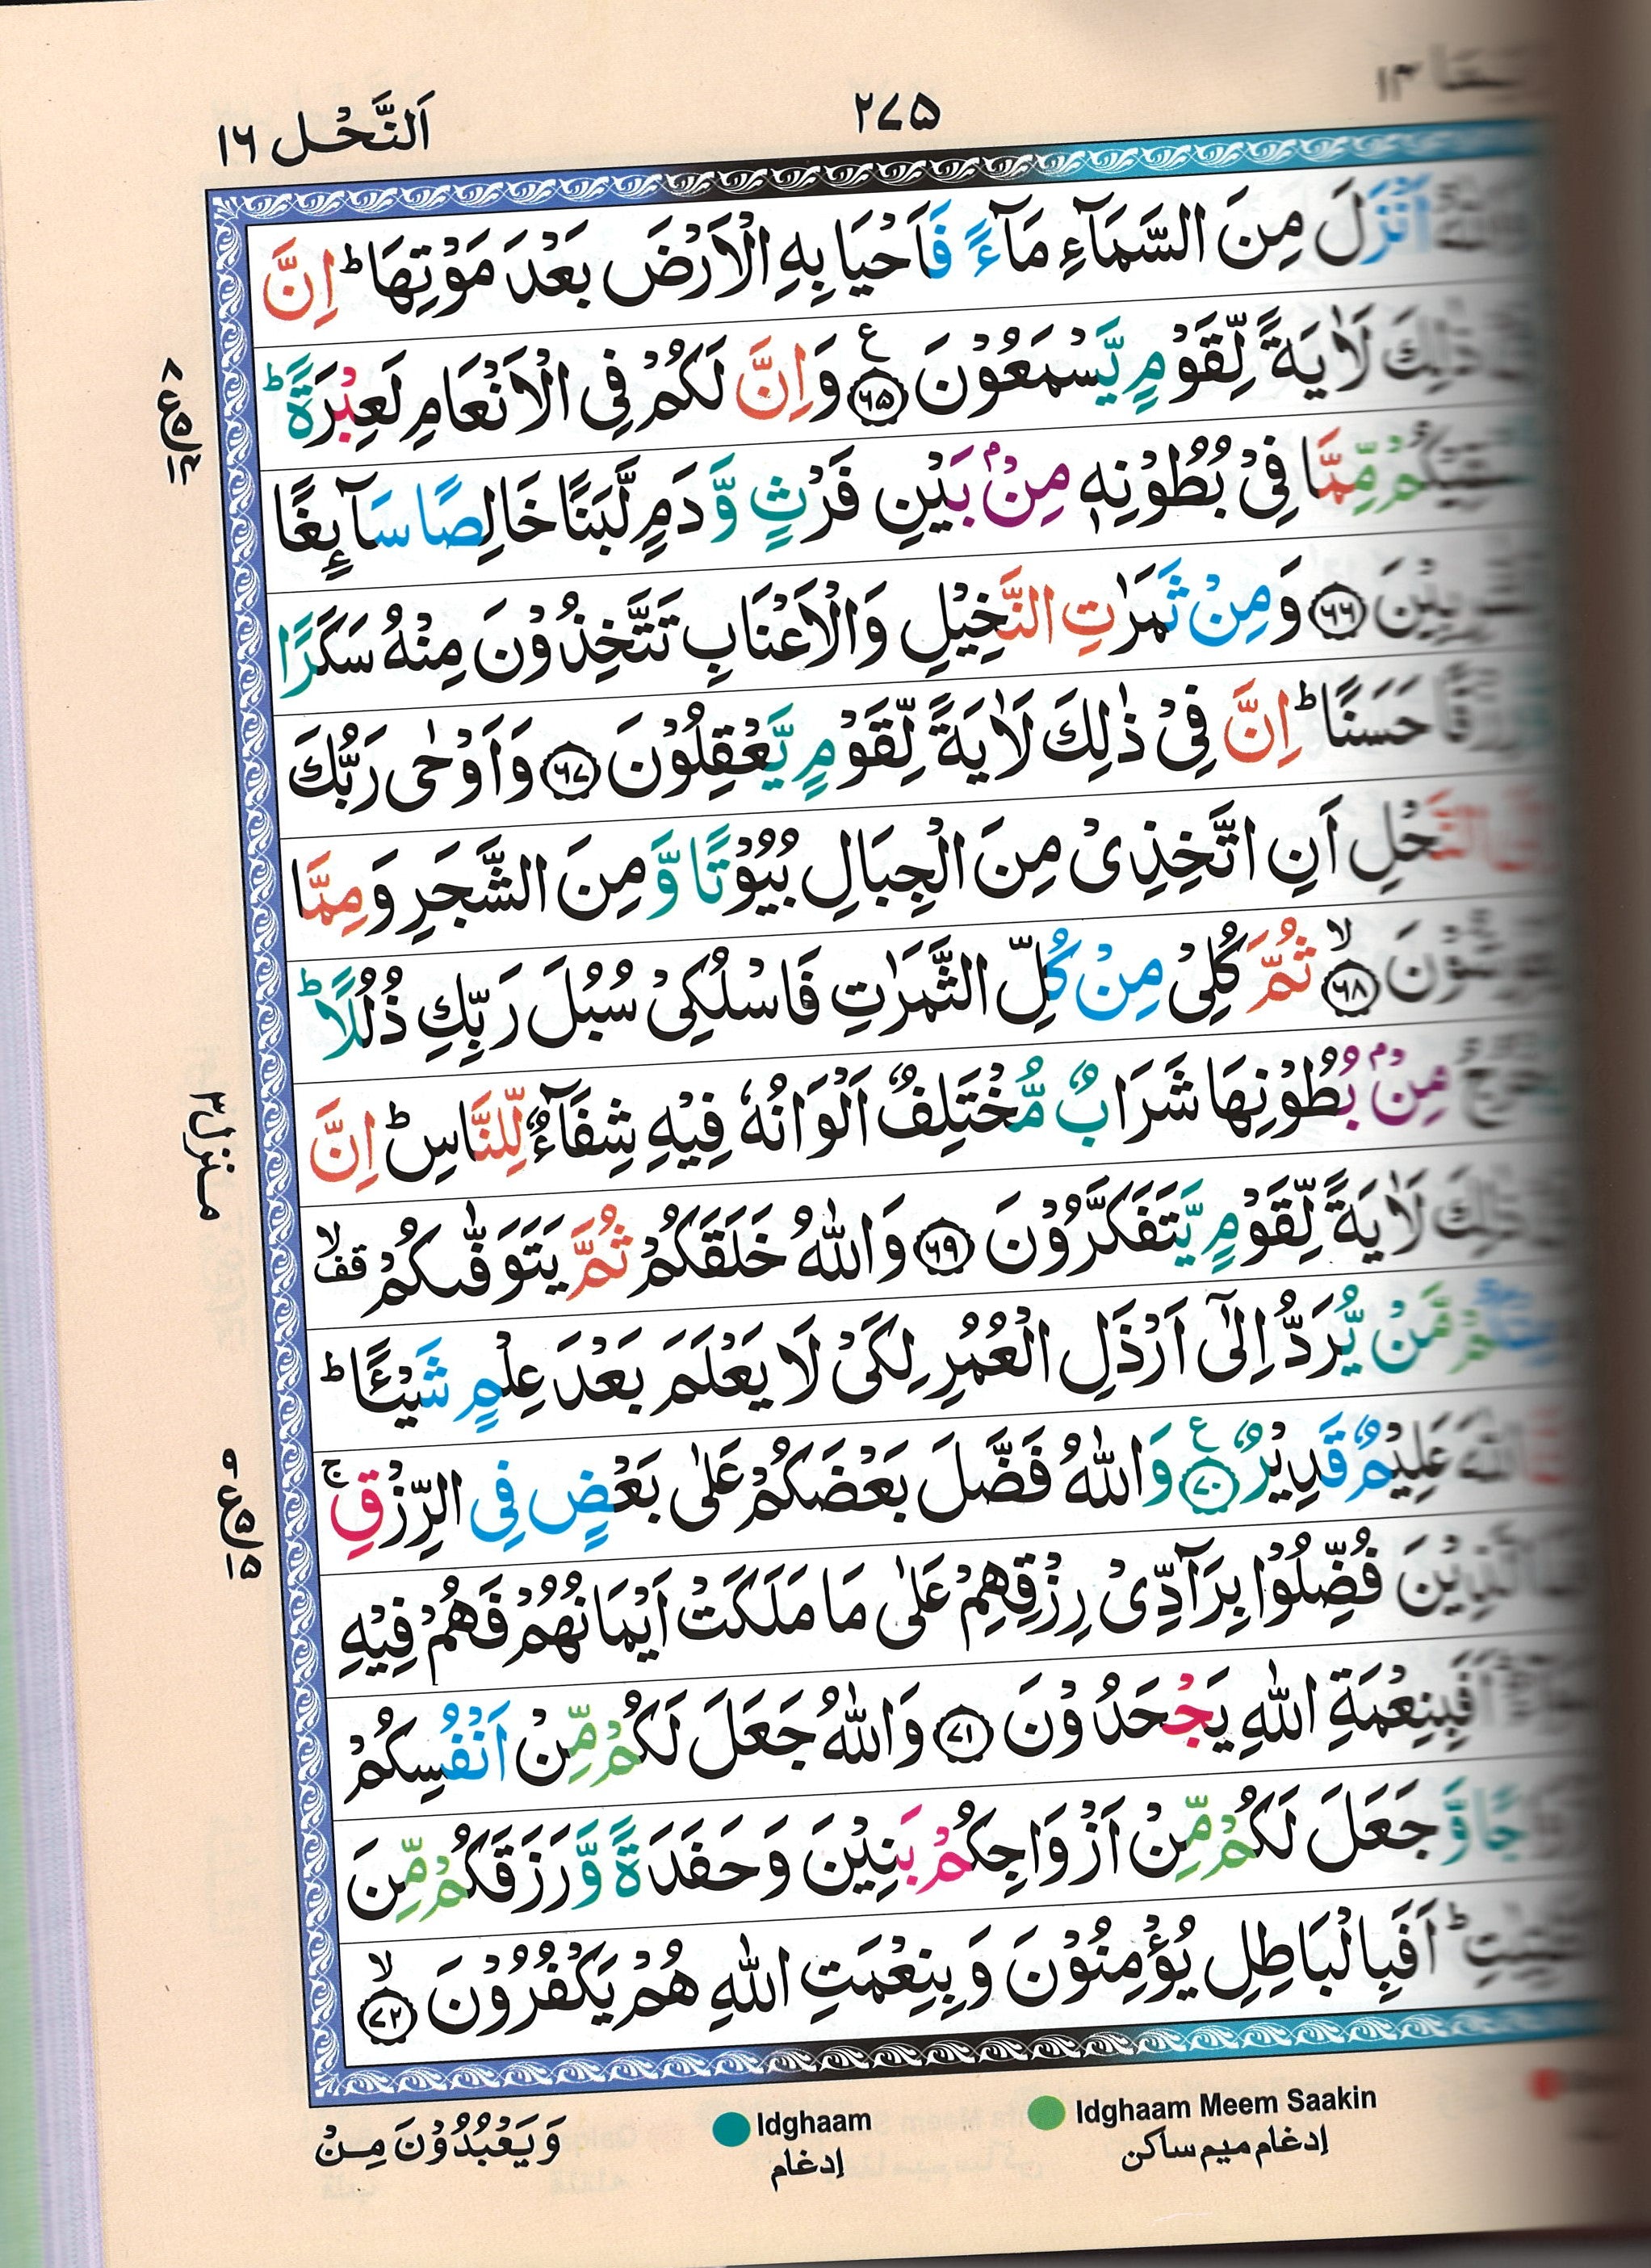 اَلنَّحْل ١٦
٢٧٥
اَنْزَلَ مِنَ السَّمَآءِ مَآءً فَاَحْيَا بِهِ الْاَرْضَ بَعْدَ مَوْتِهَا ؕ اِنَّ
ذٰلِكَ لَاٰيَةً لِّقَوْمٍ يَّسْمَعُوْنَ ع ۶۵ وَاِنَّ لَكُمْ فِى الْاَنْعَامِ لَعِبْرَةً ؕ
مِّمَّا فِىْ بُطُوْنِهٖ مِنْۢ بَيْنِ فَرْثٍ وَّدَمٍ لَّبَنًا خَالِصًا سَآئِغًا
۶۶ وَمِنْ ثَمَرٰتِ النَّخِيْلِ وَالْاَعْنَابِ تَتَّخِذُوْنَ مِنْهُ سَكَرًا
حَسَنًا ؕ اِنَّ فِىْ ذٰلِكَ لَاٰيَةً لِّقَوْمٍ يَّعْقِلُوْنَ ۶۷ وَاَوْحٰى رَبُّكَ
النَّحْلِ اَنِ اتَّخِذِىْ مِنَ الْجِبَالِ بُيُوْتًا وَّمِنَ الشَّجَرِ وَمِمَّا
ۙ ۶۸ ثُمَّ كُلِىْ مِنْ كُلِّ الثَّمَرٰتِ فَاسْلُكِىْ سُبُلَ رَبِّكِ ذُلُلًا ؕ
مِنْۢ بُطُوْنِهَا شَرَابٌ مُّخْتَلِفٌ اَلْوَانُهٗ فِيْهِ شِفَآءٌ لِّلنَّاسِ ؕ اِنَّ
ذٰلِكَ لَاٰيَةً لِّقَوْمٍ يَّتَفَكَّرُوْنَ ۶۹ وَاللّٰهُ خَلَقَكُمْ ثُمَّ يَتَوَفّٰٮكُمْ ۙ قف
مَّنْ يُّرَدُّ اِلٰٓى اَرْذَلِ الْعُمُرِ لِكَىْ لَا يَعْلَمَ بَعْدَ عِلْمٍ شَيْـًٔا ؕ
اللّٰهَ عَلِيْمٌ قَدِيْرٌ ع ۷۰ وَاللّٰهُ فَضَّلَ بَعْضَكُمْ عَلٰى بَعْضٍ فِى الرِّزْقِ ۚ
الَّذِيْنَ فُضِّلُوْا بِرَآدِّىْ رِزْقِهِمْ عَلٰى مَا مَلَكَتْ اَيْمَانُهُمْ فَهُمْ فِيْهِ
اَفَبِنِعْمَةِ اللّٰهِ يَجْحَدُوْنَ ۷۱ وَاللّٰهُ جَعَلَ لَكُمْ مِّنْ اَنْفُسِكُمْ
وَّجَعَلَ لَكُمْ مِّنْ اَزْوَاجِكُمْ بَنِيْنَ وَحَفَدَةً وَّرَزَقَكُمْ مِّنَ
ؕ اَفَبِالْبَاطِلِ يُؤْمِنُوْنَ وَبِنِعْمَتِ اللّٰهِ هُمْ يَكْفُرُوْنَ ۙ ۷۲
منزل ٣
وَيَعْبُدُوْنَ مِنْ
Idghaam
إدغام
Idghaam Meem Saakin
إدغام ميم ساكن